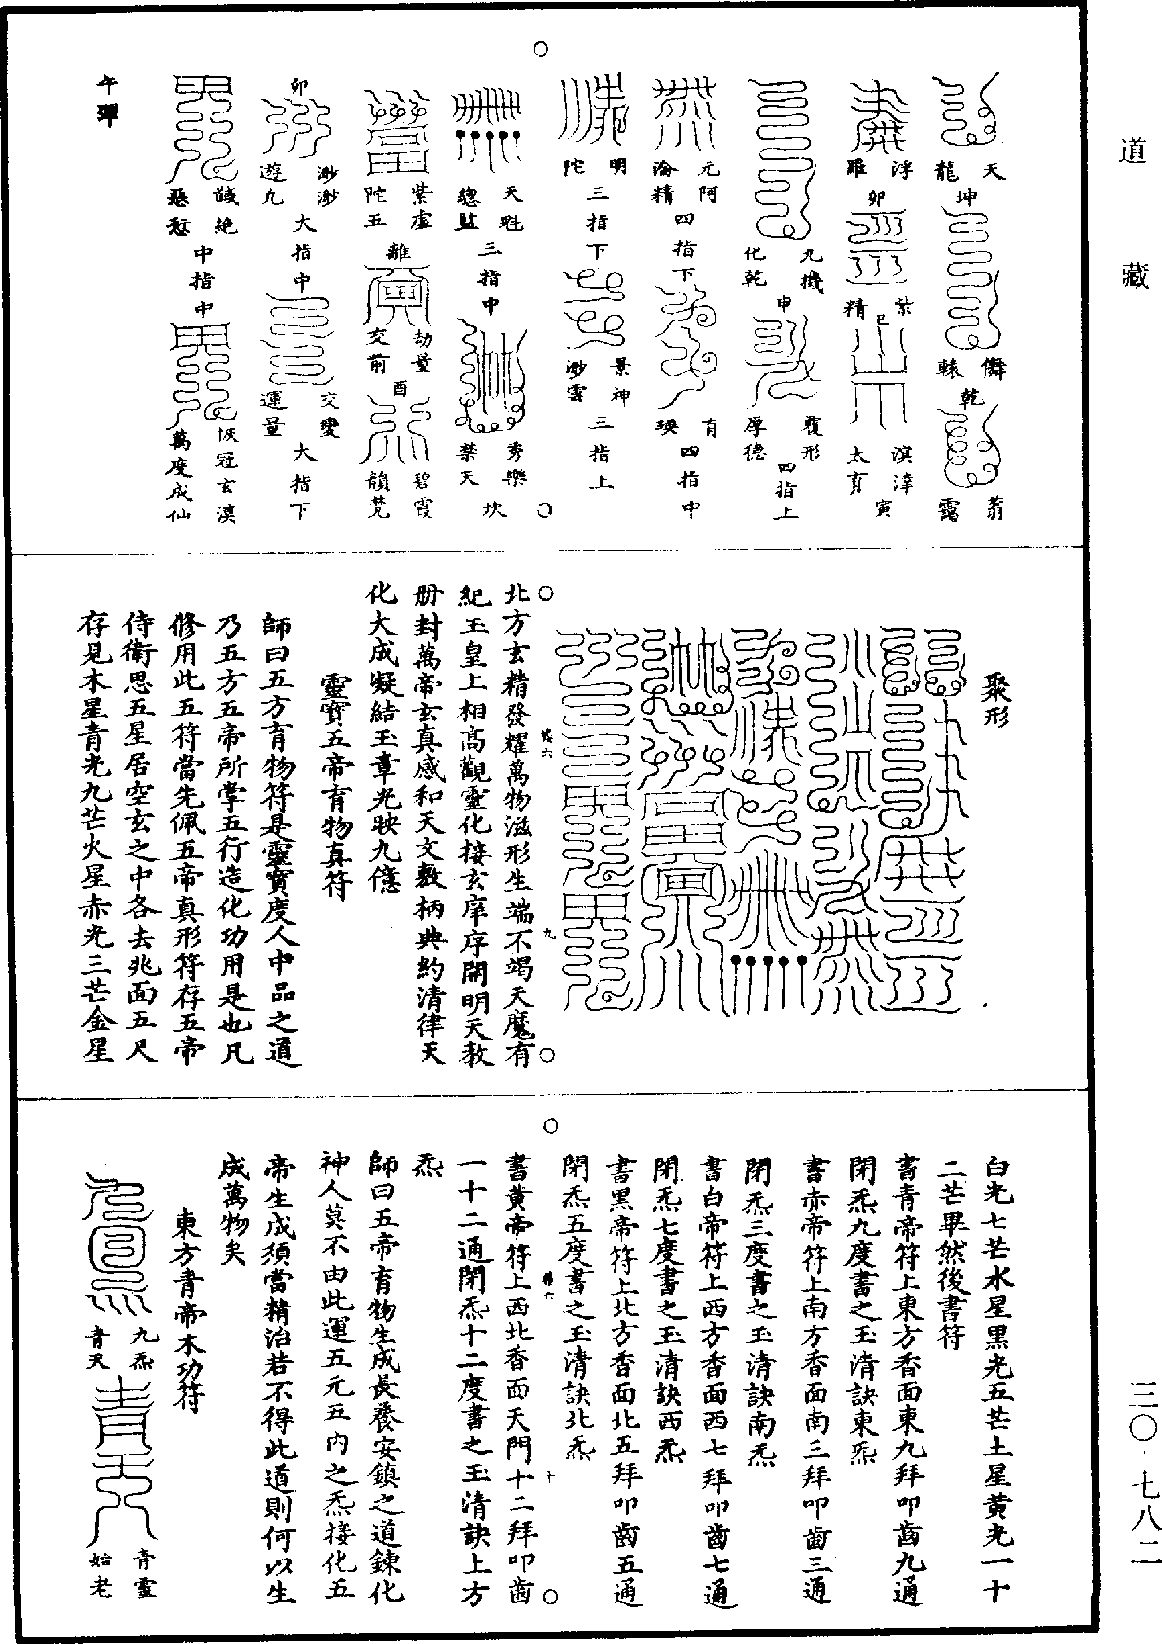 道藏
三〇·七八二
天龍
坤
乾
浮羅
卯
紫精
巳
太育
寅
九機化乾
申
覆形厚德
四指上
元阿
四指下
四指中
明陀
三指下
景神渺雲
三指上
天魁總監
三指中
秀樂禁天
坎
紫虛陀五
離
劫量交前
酉
碧霞
卯
渺渺遊九
大指中
交變運量
大指下
中指中
萬度成仙
午
聚形
北方玄精發耀萬物滋形生端不竭天魔有
紀玉皇上相高觀靈化接玄序開明天教
册封萬帝玄真感和天文敷柄典約清律天
化大成凝結玉章光映九億
靈寶五帝育物真符
師曰五方育物符是靈寶度人中品之道
乃五方五帝所掌五行造化功用是也凡
修用此五符當先佩五帝真形符存五帝
侍衛思五星居空玄之中各去兆面五尺
存見木星青光九芒火星赤光三芒金星
白光七芒水星黑光五芒土星黃光一十
二芒畢然後書符
書青帝符上東方香面東九拜叩齒九通
閉炁九度書之玉清訣東炁
書赤帝符上南方香面南三拜叩齒三通
閉炁三度書之玉清訣南炁
書白帝符上西方香面西七拜叩齒七通
閉炁七度書之玉清訣西炁
書黑帝符上北方香面北五拜叩齒五通
閉炁五度書之玉清訣北炁
書黃帝符上西北香面天門十二拜叩齒
一十二通閉炁十二度書之玉清訣上方
炁
師曰五帝育物生成長養安鎮之道鍊化
神人莫不由此運五元五內之炁接化五
帝生成須當精治若不得此道則何以生
成萬物矣
東方青帝木功符
九炁青天
青靈始老